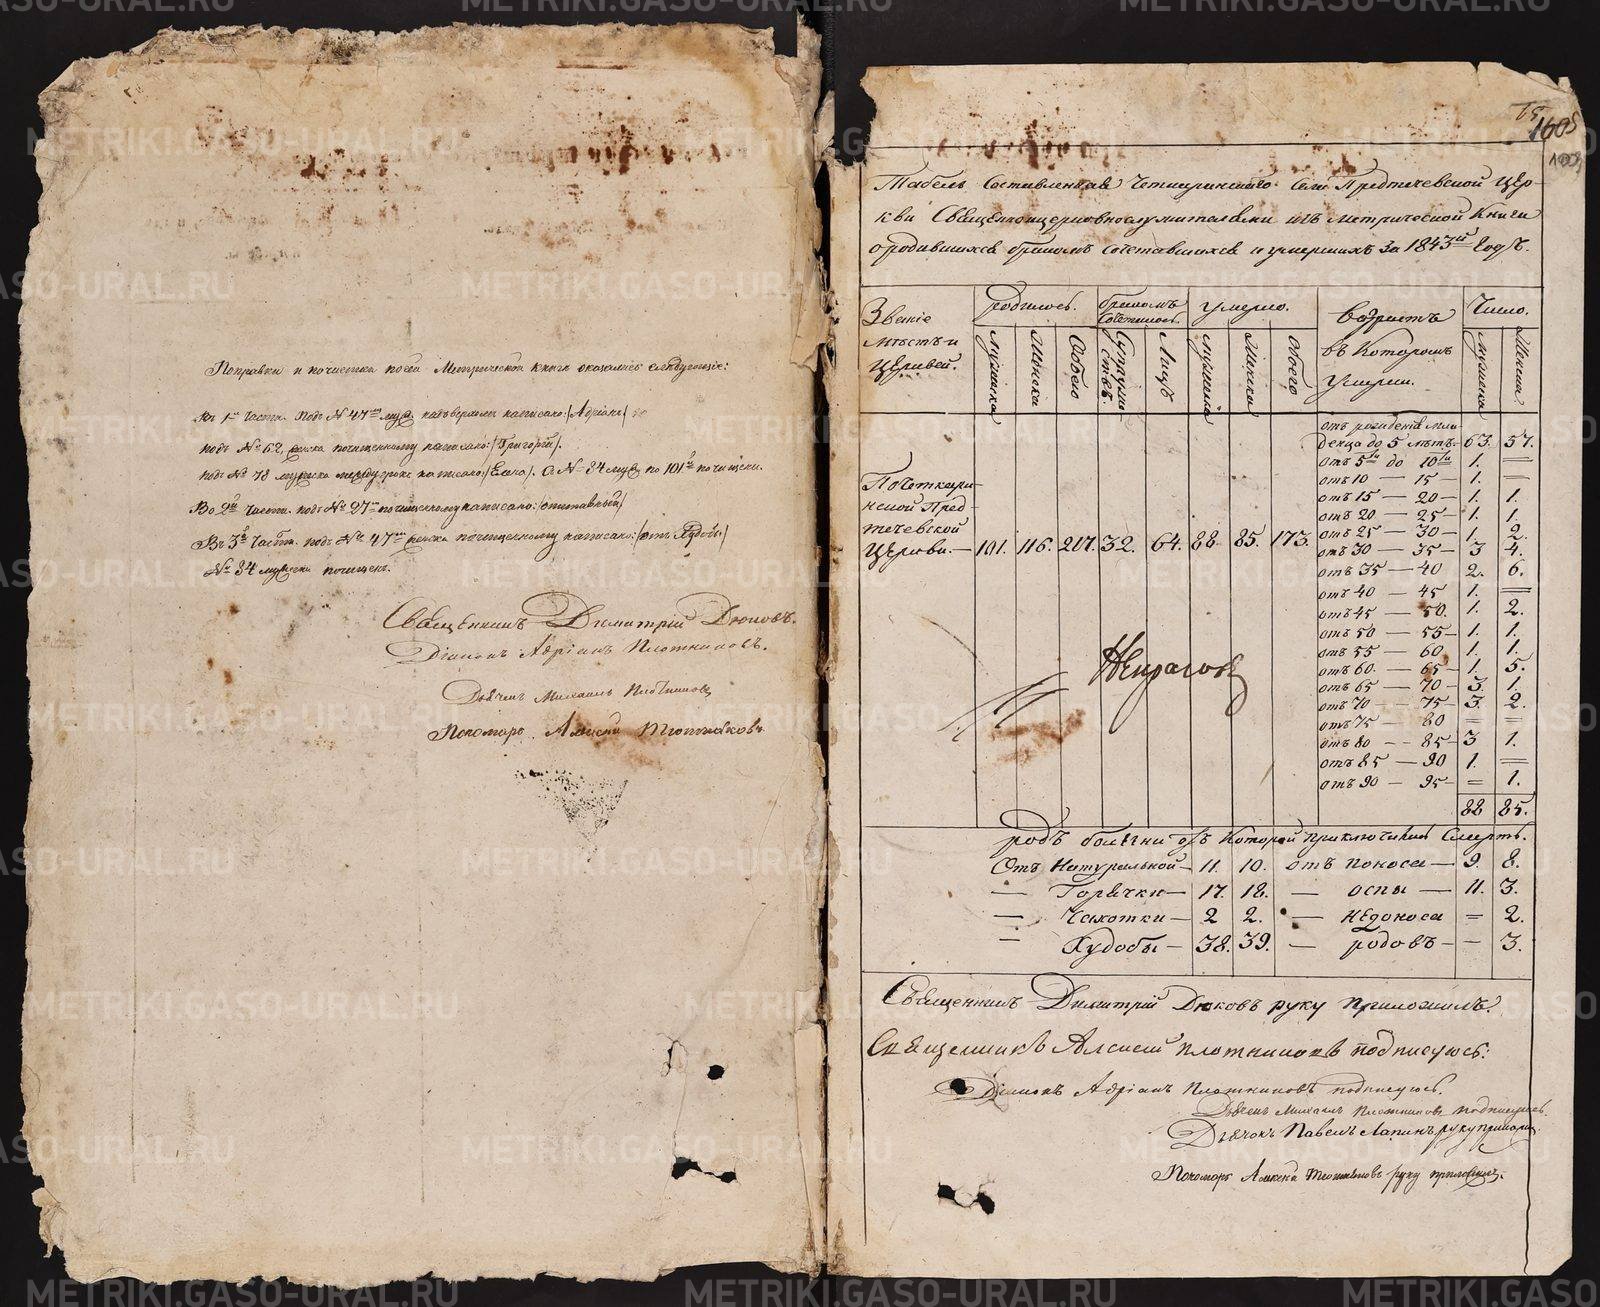 Поправки и почистки по сей Метрической книги оказались следующіе:
Въ 1й Части. Подъ № 47м муж надъ верхомъ написано: /Адріанъ/
подъ № 62, женска почищенному написано: /Григорій/.
подъ № 78 мужеска между строкъ написано: /Елена/. А № 84 муж по 101й почищены.
Во 2й Части. подъ № 27м почищенному написано: /отставный/
Въ 3й Части. подъ № 47м женска почищенному написано: /отъ Худобы/
№ 34 мужеска почищенъ.
Священникъ Димитрій Дюковъ.
Діаконъ Адріанъ Плотниковъ.
Дьячекъ Михаилъ Плотниковъ
Пономарь Алексѣй
160
Табель Составленная Села Предтечевской Цер-
кви Священноцерковнослужителями изъ Метрической Книги
о родившихся бракомъ сочетавшихся и умершихъ за 1843й Годъ.
Званіе мѣстъ и Церквей.
родилось.
бракомъ Сочеталось.
умерло.
возрастъ въ Которомъ Умерли.
Число.
Мужеска
Женска
Обоего
Супружествъ
Лицъ
Мужеска
Женска
Обоего
Мужеска
Женска
Предтечевской Церкви. — 101. 116. 217. 32. 64. 88 85. 173.
отъ рожденія мла-
денца до 5 лѣтъ — 63. 57.
отъ 5ти до 10ти 1. =
отъ 10 — 15 — 1. =
отъ 15 — 20 — 1. 1.
отъ 20 — 25 — 1. 1.
отъ 25 — 30 — 1. 2.
отъ 30 — 35 — 3 4.
отъ 35 — 40 2. 6.
отъ 40 — 45 1. =
отъ 45 — 50. 1. 2.
отъ 50 — 55 — 1. 1.
отъ 55 — 60 1. 1.
отъ 60. — 65 — 1. 5.
отъ 65 — 70 — 3. 1.
отъ 70 — 75 — 3. 2.
отъ 75 — 80 = =
отъ 80 — 85 — 3 1.
отъ 85 — 90 1. =
отъ 90 — 95 — = 1.
88 85.
Некрасов
родъ болѣзни отъ Которой приключилась Смерть.
Отъ Натуральной — 11. 10. отъ поноса — 9. 8.
— Горячки — 17. 18. — оспы — 11. 3.
— Чахотки — 2 2. — недоноса = 2.
— Худобы — 38. 39. — родовъ — — 3.
Священникъ Димитрій Дюковъ руку приложилъ.
Священникъ Алексѣй Плотниковъ подписуюсь:
Діаконъ Адріанъ Плотниковъ подписуюсь.
Дьячекъ Михаилъ Плотниковъ подписуюсь.
Дьячокъ Павелъ Лапинъ руку прилож.
Пономарь Алексѣй руку приложилъ.
METRIKI.GASO-URAL.RU